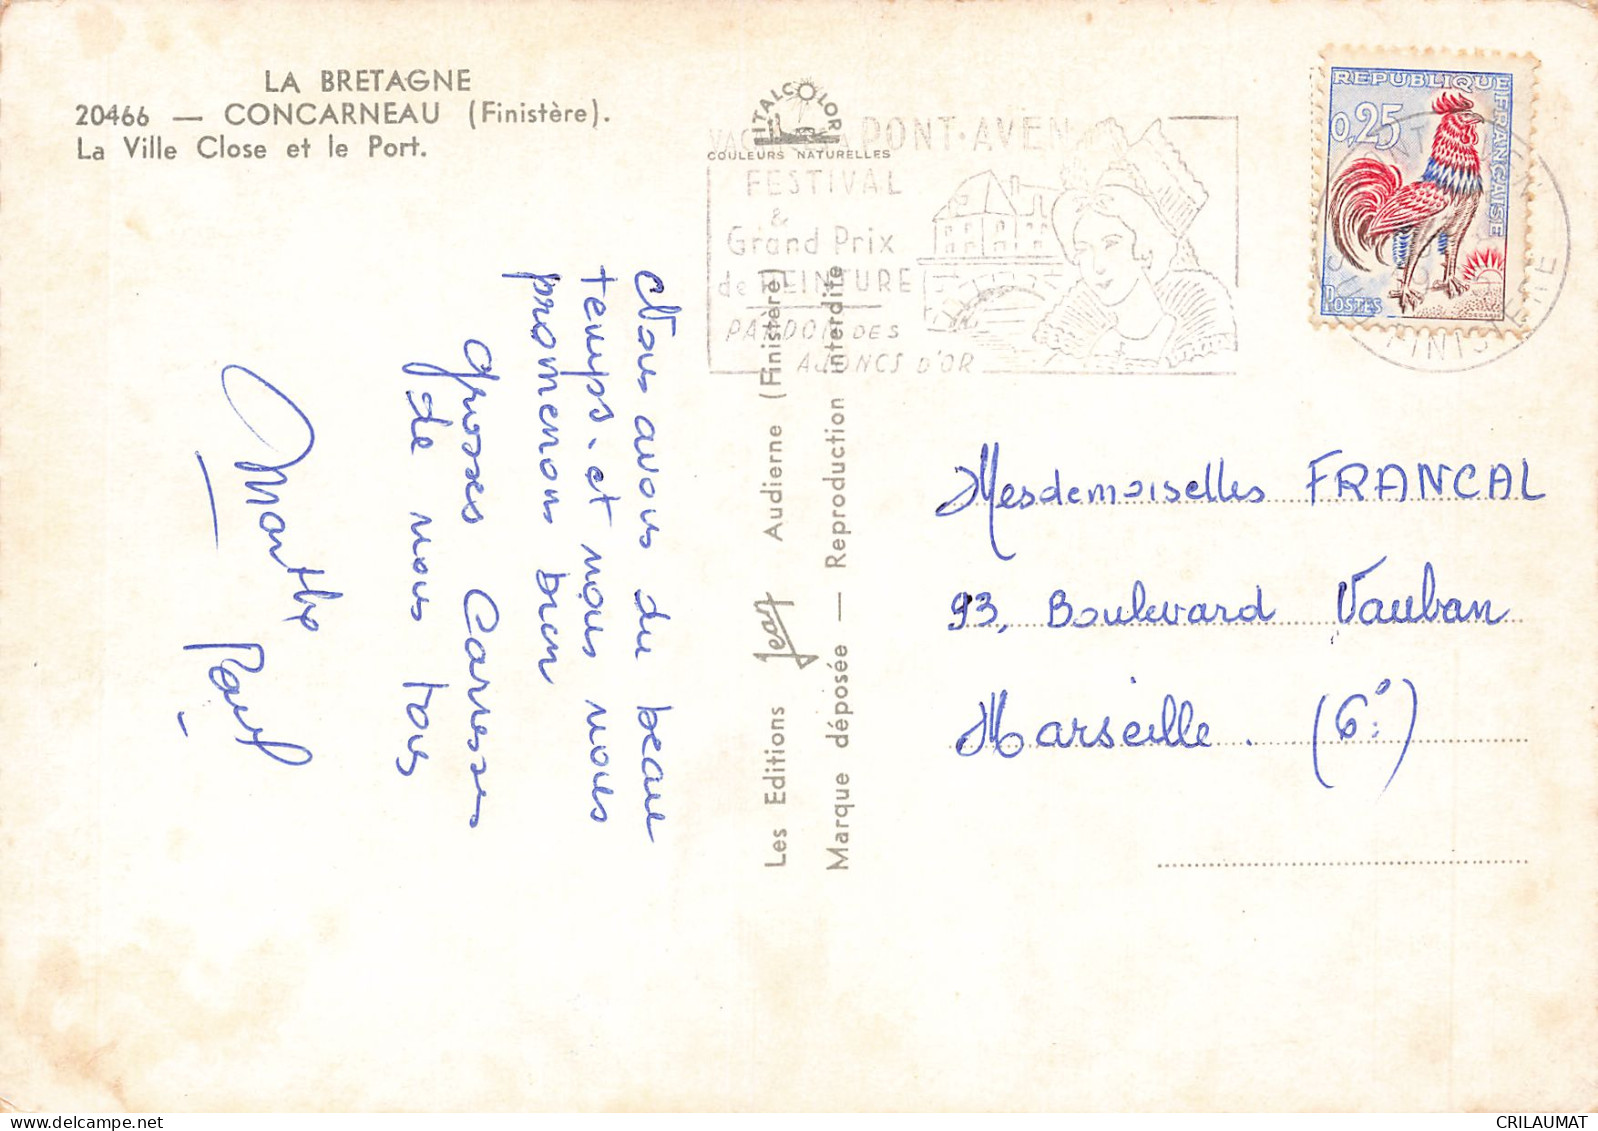 LA BRETAGNE
20466 — CONCARNEAU (Finistère).
La Ville Close et le Port.
ITALCOLOR
COULEURS NATURELLES
PONT-AVEN
FESTIVAL
&
Grand Prix
de PEINTURE
PARDON DES
AJONCS D'OR
REPUBLIQUE FRANÇAISE
0,25
POSTES
FINISTERE
Nous avons du beau
temps. et nous nous
promenons bien
grosses Caresses
de nous tous
Marthe
Paul
Les Editions Jean Audierne (Finistère)
Marque déposée — Reproduction interdite
Mesdemoiselles FRANCAL
93, Boulevard Vauban
Marseille. (6º)
CRILAUMAT